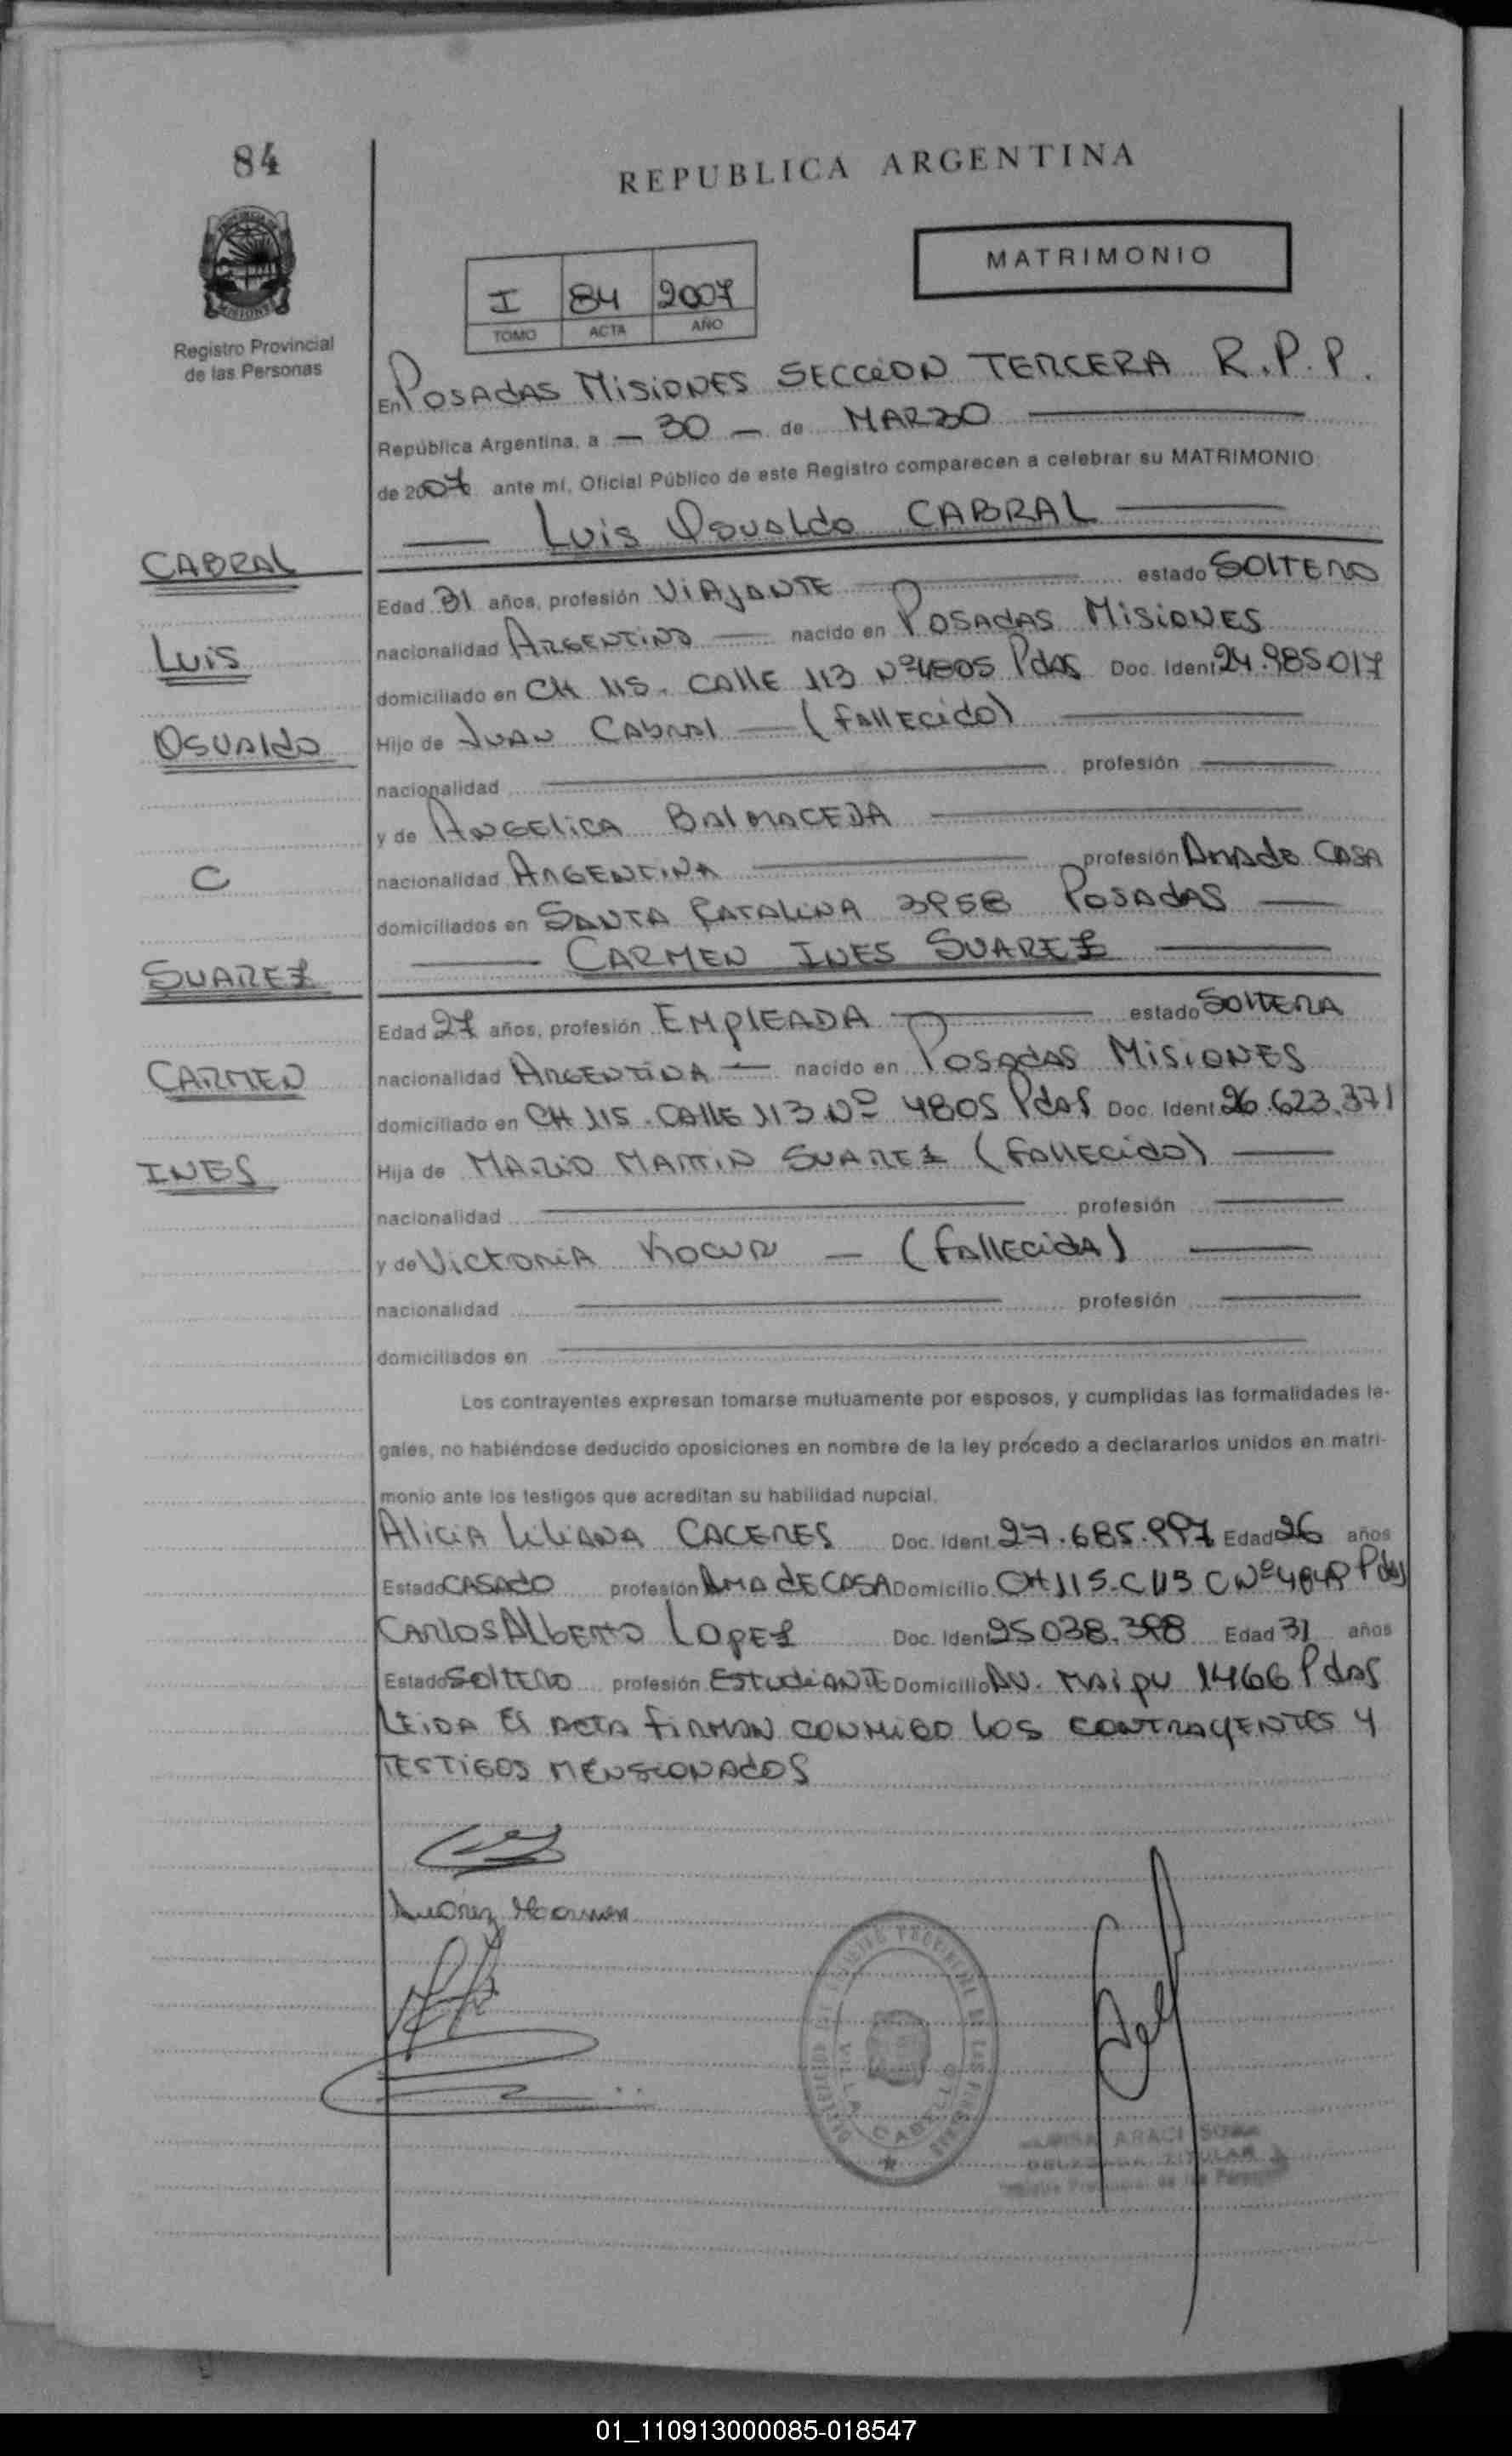 84
REPUBLICA ARGENTINA
MATRIMONIO
I 84 2007
TOMO ACTA AÑO
Registro Provincial
de las Personas
En POSADAS MISIONES SECCION TERCERA R.P.P.
República Argentina, a — 30 — de MARZO
de 2007 ante mí, Oficial Público de este Registro comparecen a celebrar su MATRIMONIO
Luis Osvaldo CABRAL
CABRAL
Edad 31 años, profesión VIAJANTE estado SOLTERO
nacionalidad ARGENTINO — nacido en POSADAS MISIONES
LUIS
domiciliado en CH 115. CALLE 113 Nº 4805 Pdas Doc. Ident. 24.985.017
Hijo de JUAN CABRAL — (FALLECIDO)
OSVALDO
nacionalidad profesión
y de ANGELICA BALMACEDA
C
nacionalidad ARGENTINA profesión AMA de CASA
domiciliados en SANTA CATALINA POSADAS
CARMEN INES SUAREZ
SUAREZ
Edad 27 años, profesión EMPLEADA estado SOLTERA
nacionalidad ARGENTINA — nacido en POSADAS MISIONES
CARMEN
domiciliado en CH 115. CALLE 113 Nº 4805 Pdas Doc. Ident. 26.623.371
Hija de MARIO MARTIN SUAREZ (FALLECIDO)
INES
nacionalidad profesión
y de VICTORIA KOCUR — (FALLECIDA)
nacionalidad profesión
domiciliados en
Los contrayentes expresan tomarse mutuamente por esposos, y cumplidas las formalidades le-
gales, no habiéndose deducido oposiciones en nombre de la ley procedo a declararlos unidos en matri-
monio ante los testigos que acreditan su habilidad nupcial.
ALICIA LILIANA CACERES Doc. Ident. 27.685.997 Edad 26 años
Estado CASADO profesión AMA DE CASA Domicilio CH 115-C 113 C Nº Pdas
CARLOS ALBERTO LOPEZ Doc. Ident. Edad 31 años
Estado SOLTERO profesión ESTUDIANTE Domicilio AV. MAIPU 1466 Pdas
LEIDA EL ACTA FIRMAN CONMIGO LOS CONTRAYENTES Y
TESTIGOS MENSIONADOS
Suárez Carmen
PROVINCIAL DE LAS
VILLA CABELLO
ARACI
TITULAR
01_110913000085-018547